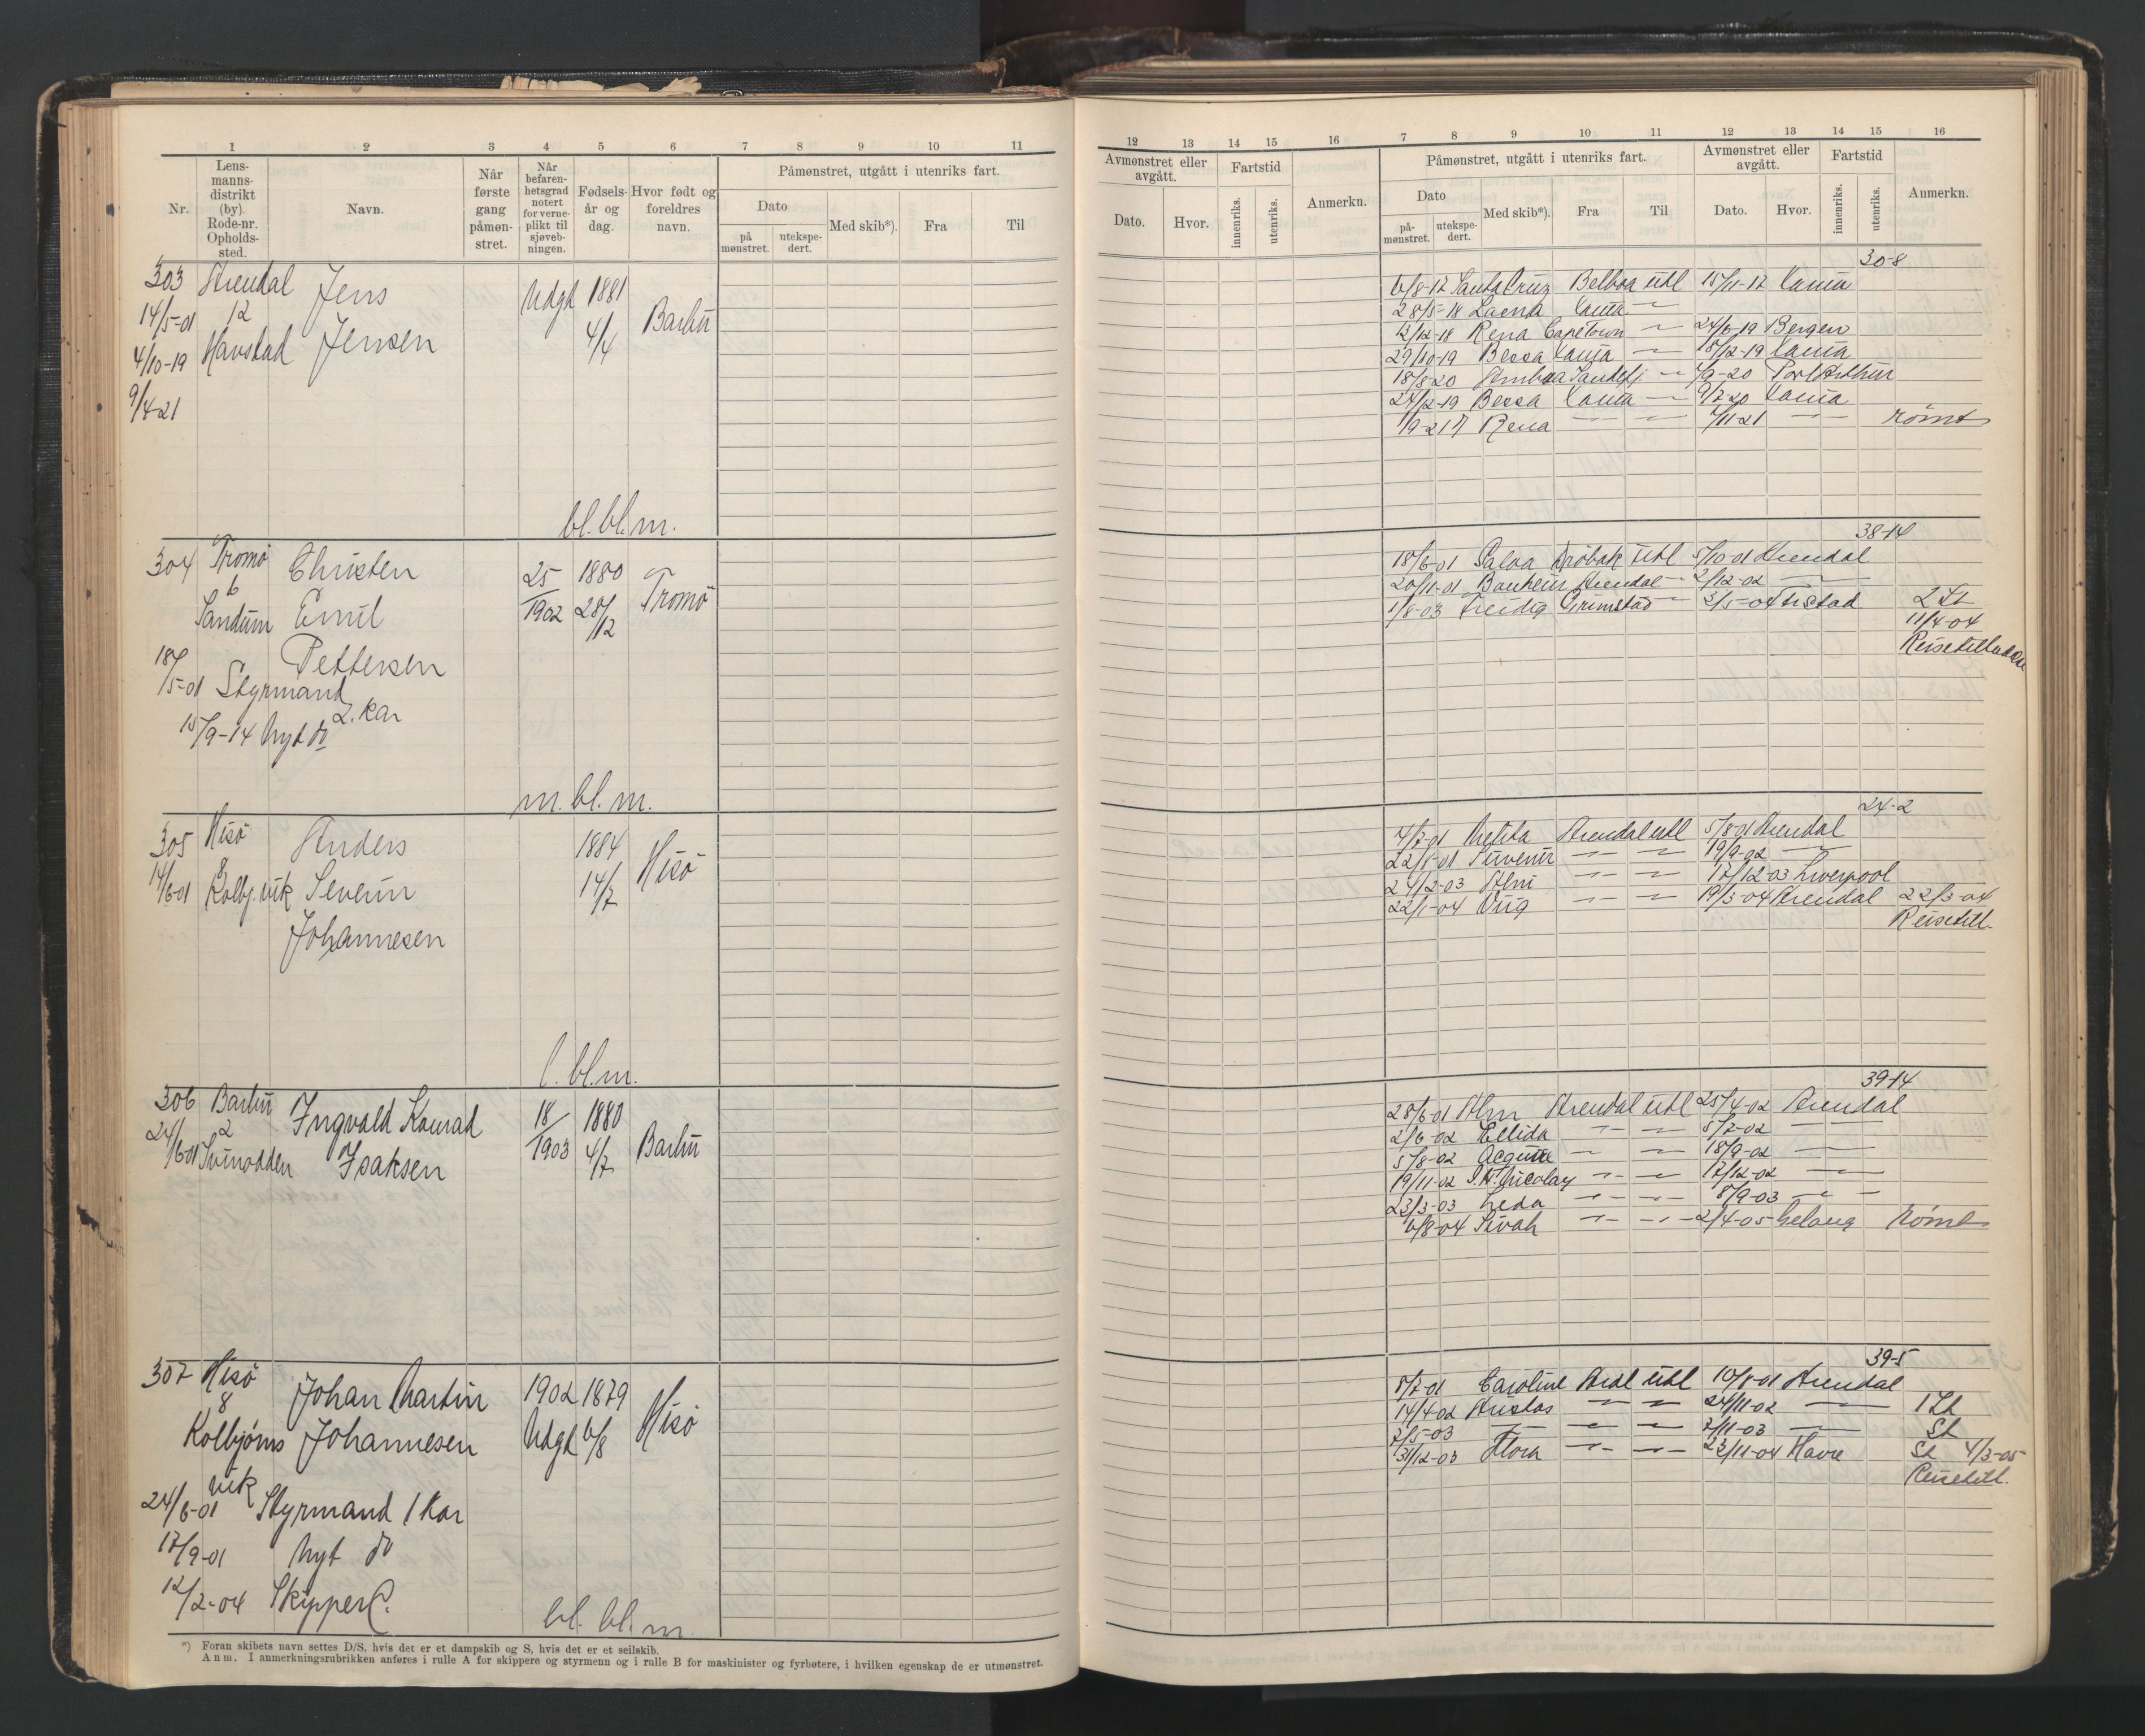 1 2 3 4 5 6 7 8 9 10 11
Nr.
Lens-
manns-
distrikt
(by).
Rode-nr.
Opholds-
sted.
Navn.
Når
første
gang
påmøn-
stret.
Når
befaren-
hetsgrad
notert
for verne-
plikt til
sjøveb-
ningen.
Fødsels-
år og
dag.
Hvor født og
foreldres
navn.
Påmønstret, utgått i utenriks fart.
Dato
på
mønstret.
utekspe-
dert.
Med skib*).
Fra
Til
303 Arendal Jens Udgt 1881
14/5-01 12 4/4 Barbu
4/10-19 Havstad Jensen
9/4-21
bl. bl. m.
304 Tromø Christen 25 1880
6 Tromø
Sandum Emil 1902 28/12
Pettersen
18/5-01 Styrmand
2. Kar
15/9-14 Nyt do
m. bl. m.
305 Hisø Anders 1884
14/6-01 8 Hisø
Kolbj.vik Severin 14/7
Johannesen
l. bl. m.
306 Barbu Ingvald Konrad 18 1880
24/6-01 2 1903 4/7 Barbu
Svinodden Isaksen
307 Hisø Johan Martin 1902 1879
8 Hisø
Kolbjørns Johannesen Udgt 6/8
vik
24/6-01 Styrmand 1 Kar
17/9-01 Nyt do
12/2-04 Skipper C.
bl. bl. m.
*) Foran skibets navn settes D/S, hvis det er et dampskib og S, hvis det er et seilskib.
Anm. I anmerkningsrubrikken anføres i rulle A for skippere og styrmenn og i rulle B for maskinister og fyrbøtere, i hvilken egenskap de er utmønstret.
12 13 14 15 16 7 8 9 10 11 12 13 14 15 16
Avmønstret eller
avgått.
Dato.
Hvor.
Fartstid
innenriks.
utenriks.
Anmerkn.
Påmønstret, utgått i utenriks fart.
Dato
på-
mønstret.
utekspe-
dert.
Med skib*).
Fra
Til
Avmønstret eller
avgått.
Dato.
Hvor.
Fartstid
innenriks.
utenriks.
Anmerkn.
30-8
6/8-17 Santa Cruz Belboa utl 15/11-17
28/5-18
12/12-18 Rena Capetown 24/6-19 Bergen
29/10-19 Bessa 18/12-19
18/8-20 Sandefj. /9-20 Port Arthur
24/12-19 Bessa 9/7-20
1/9-21 Rena 7/11-21 rømt
38-14
18/6-01 Salva Drøbak utl 5/10-01 Arendal
20/11-01 Arendal 2/12-02
1/8-03 Freidig Grimstad 3/5-04 2 St
11/4-04
24-2
4/7-01 Arendal utl 5/8-01 Arendal
22/8-01 Suvenir 19/9-02
24/12-03 17/12-03 Liverpool
22/1-04 19/3-04 Arendal 22/3-04
Reisetill.
39-14
28/6-01 Arendal utl 25/4-02 Arendal
2/6-02 Ellida 5/7-02
5/8-02 18/9-02
19/11-02 Nicolay 17/12-02
23/3-03 Leda 8/9-03
6/8-04 2/4-05 rømt
39-5
8/7-01 Caroline Ardl utl 10/8-01 Arendal
14/4-02 24/11-02 1 St
7/5-03 7/11-03 St
31/12-03 23/11-04 Havre St 4/3-05
Reisetill.